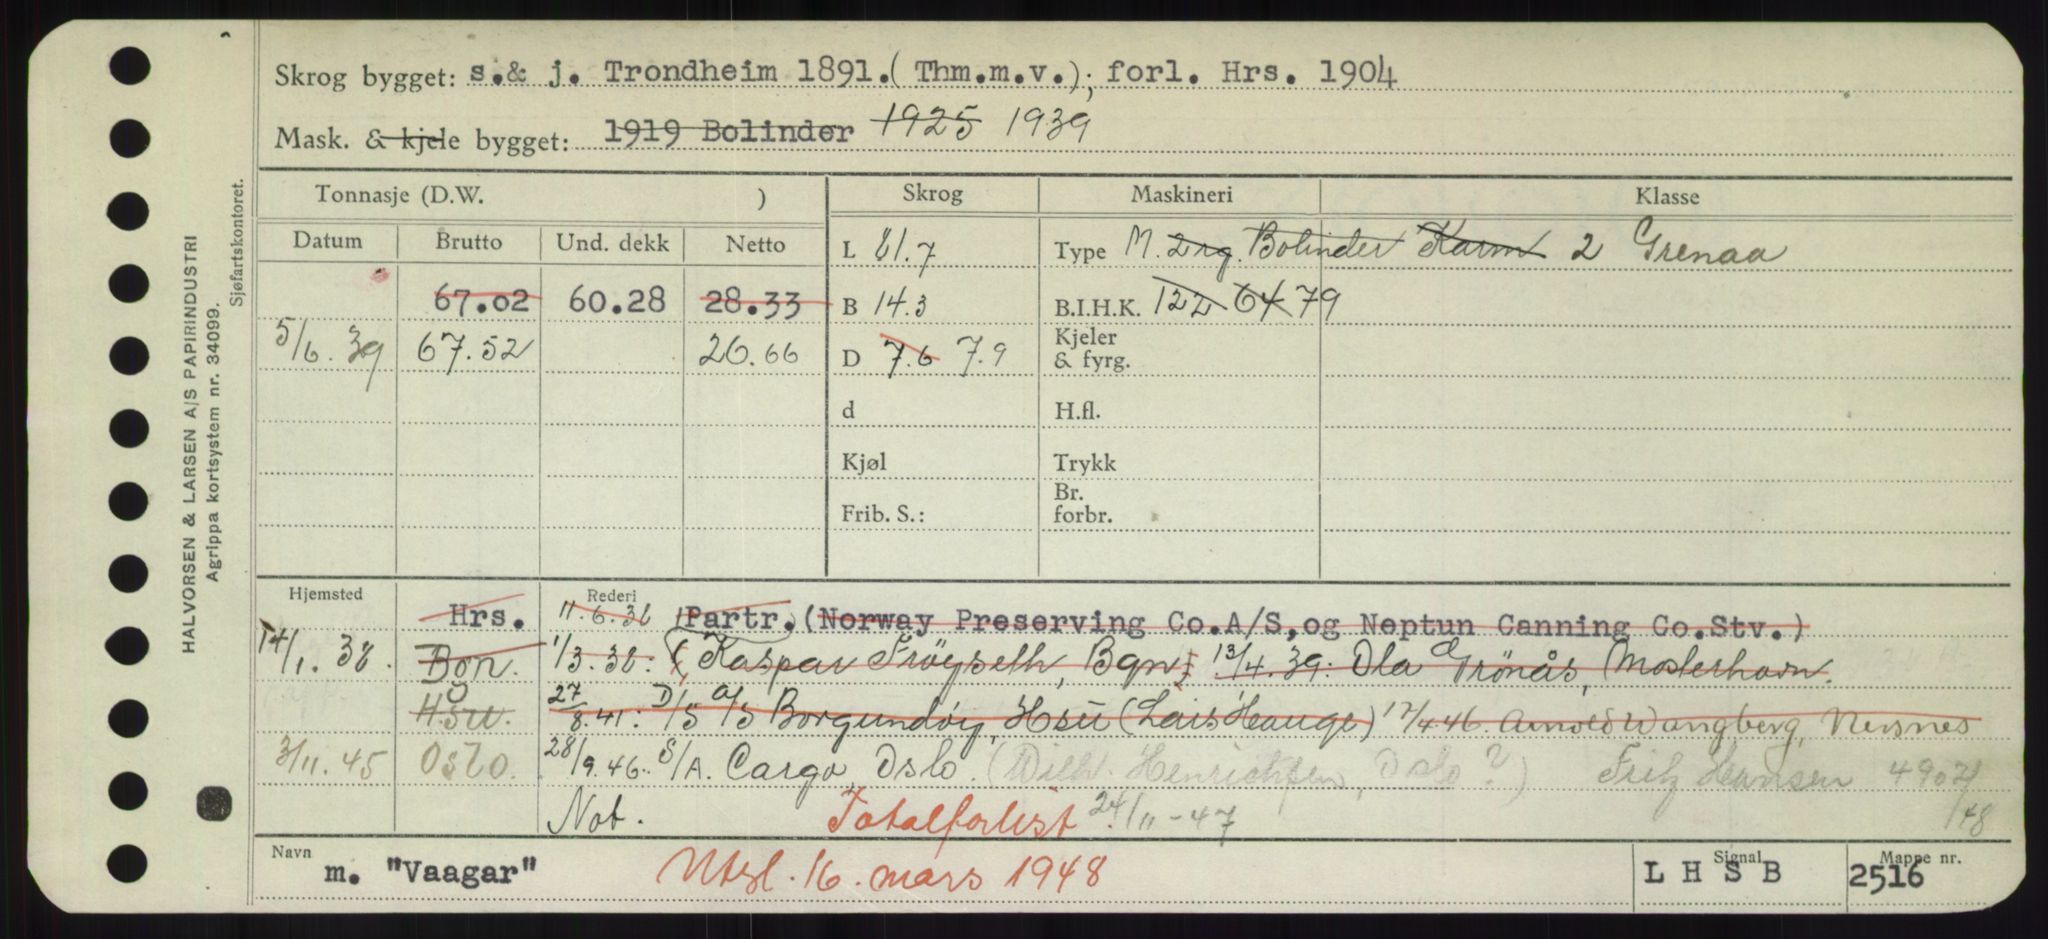 Skrog bygget: s.& j. Trondheim 1891.( Thm.m.v.); forl. Hrs. 1904
Mask. & kjele bygget: 1919 Bolinder 1925 1939
Tonnasje (D.W. ) Skrog Maskineri Klasse
Datum Brutto Und. dekk Netto L 81.7 Type M. 2 rg. Bolinder Karm 2 Grenaa
67.02 60.28 28.33 B 14.3 B.I.H.K. 122 64 79
5/6.39 67.52 26.66 D 7.6 7.9 Kjeler & fyrg.
d H.fl.
Kjøl Trykk
Frib. S.: Br. forbr.
Hjemsted Rederi
Hrs. 11.6.38 Partr. (Norway Preserving Co.A/S,og Neptun Canning Co.Stv.)
14/1.38. Bgn. 1/3.38: (Kaspar Frøyseth, Bgn) 13/4.39: Ola Grönås, Mosterhavn.
27/8.41: D/S A/S Borgundöy, Hsu (Lars Hauge) 17/4.46. Arnold Wangberg, Nersnes
3/11.45 Oslo. 28/9.46. S/A. Cargo, Oslo. (Wilh. Henrichsen, Oslo?) Fritz Hansen 4902/48
Not. Totalforlist 24/11-47
Navn m. "Vaagar" Utgl. 16. mars 1948 Signal L H S B Mappe nr. 2516
HALVORSEN & LARSEN A/S PAPIRINDUSTRI
Agrippa kortsystem nr. 34099.
Sjøfartskontoret.